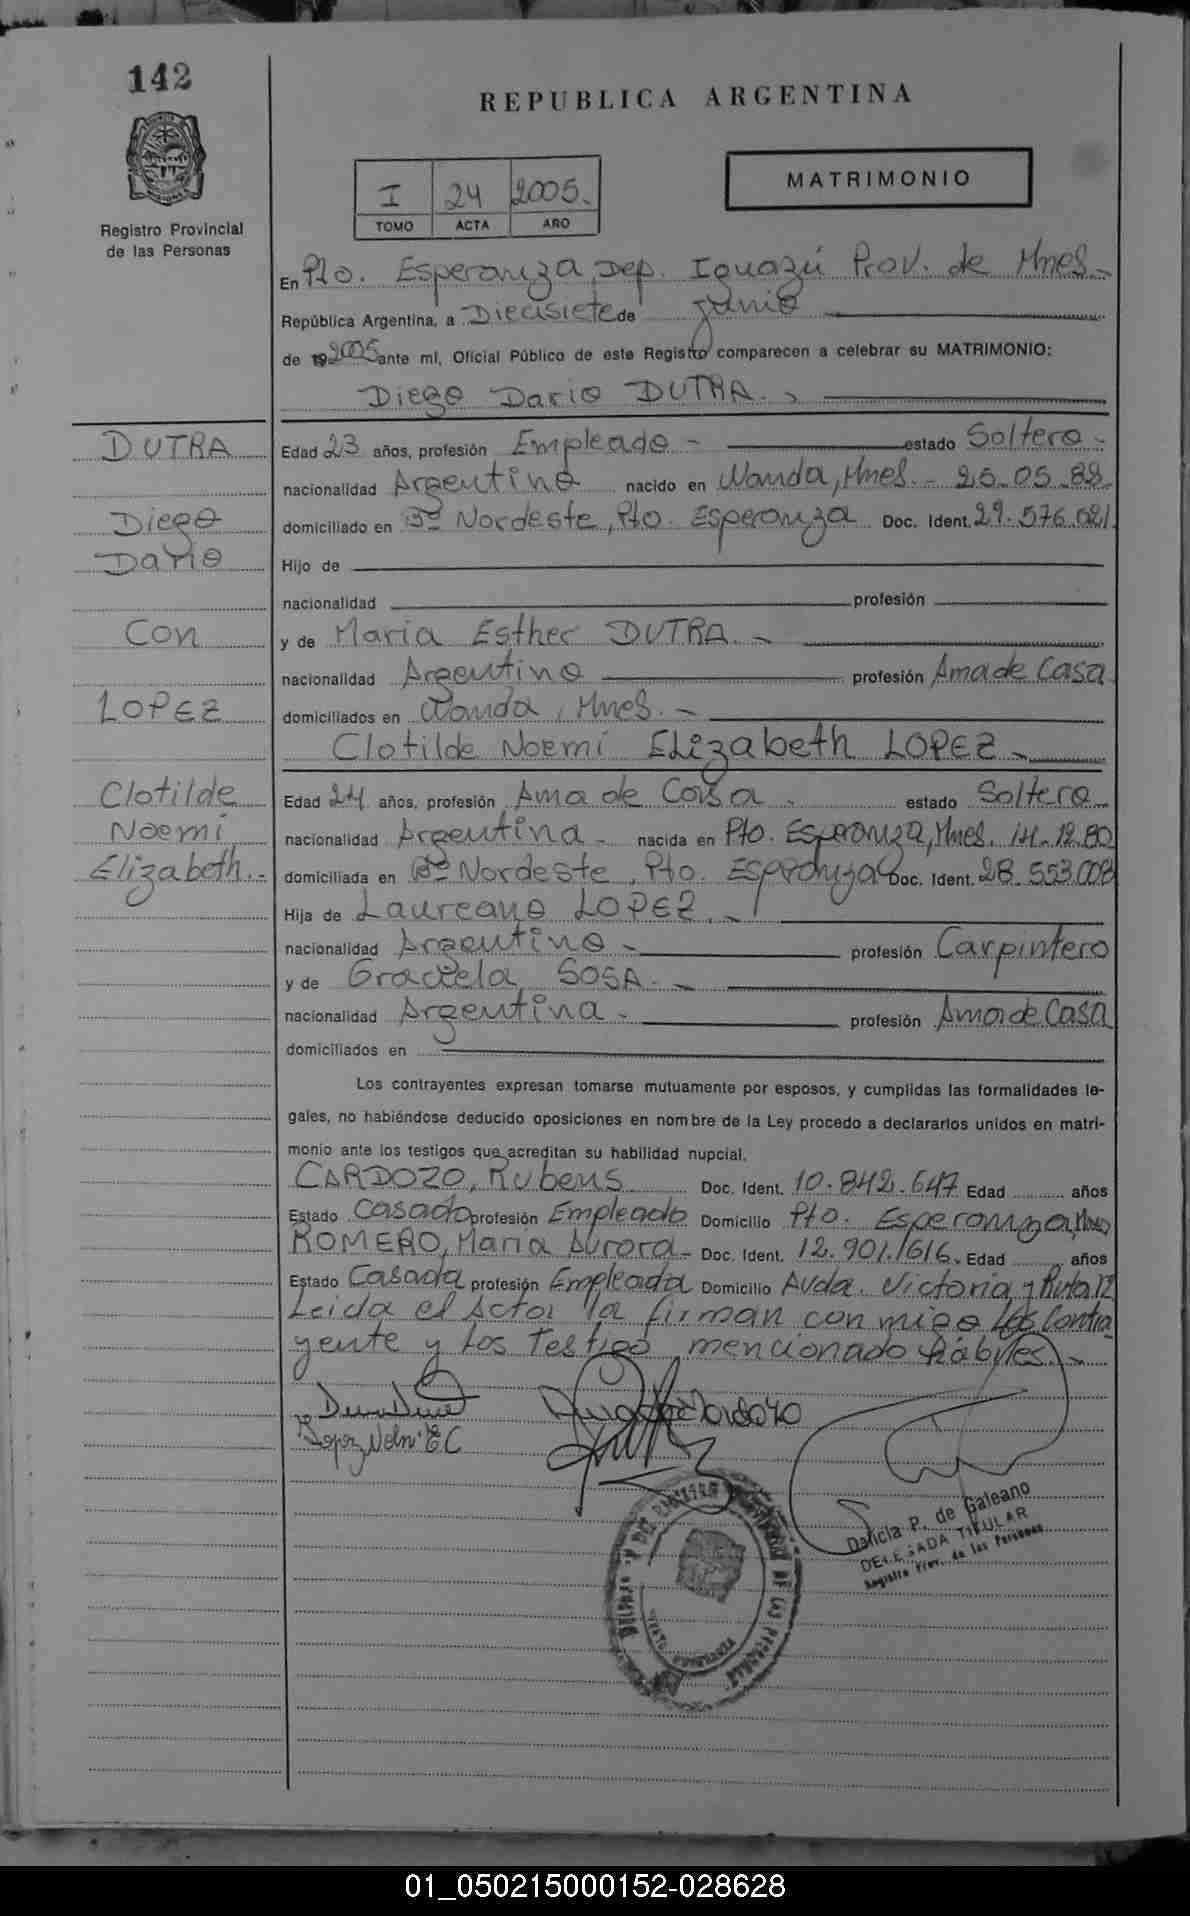 142
REPUBLICA ARGENTINA
Registro Provincial
de las Personas
I 24 2005.
TOMO ACTA AÑO
MATRIMONIO
En Pto. Esperanza, Dep. Iguazú Prov. de Mnes.
República Argentina, a Diecisiete de junio
de 2005 ante mí, Oficial Público de este Registro comparecen a celebrar su MATRIMONIO:
Diego Dario DUTRA.
DUTRA
Diego
Dario
Con
LOPEZ
Clotilde
Noemi
Elizabeth.-
Edad 23 años, profesión Empleado - estado Soltero -
nacionalidad Argentino nacido en Wanda, Mnes. - 25-05-82-
domiciliado en Bº Nordeste, Pto. Esperanza Doc. Ident. 29.576.621
Hijo de
nacionalidad profesión
y de Maria Esther DUTRA. -
nacionalidad Argentino profesión Ama de Casa
domiciliados en Wanda, Mnes. -
Clotilde Noemi Elizabeth LOPEZ -
Edad 24 años, profesión Ama de Casa . estado Soltera
nacionalidad Argentina - nacida en Pto. Esperanza, Mnes. 14-12-80
domiciliada en Bº Nordeste, Pto. Esperanza Doc. Ident. 28.553.008
Hija de Laureano LOPEZ. -
nacionalidad Argentino - profesión Carpintero
y de Graciela SOSA. -
nacionalidad Argentina - profesión Ama de Casa
domiciliados en
Los contrayentes expresan tomarse mutuamente por esposos, y cumplidas las formalidades le-
gales, no habiéndose deducido oposiciones en nombre de la Ley procedo a declararlos unidos en matri-
monio ante los testigos que acreditan su habilidad nupcial.
CARDOZO, Rubens Doc. Ident. 10.842.647 Edad años
Estado Casado profesión Empleado Domicilio Pto. Esperanza, Mnes
ROMERO, Maria Aurora - Doc. Ident. 12.901.616. Edad años
Estado Casada profesión Empleada Domicilio Avda. Victoria y Ruta 12
Leida el Acta, la firman con migo los Contra
yente y los Testigo mencionado hábiles. -
Dalicia P. de Galeano
DELEGADA TITULAR
Registro Prov. de las Personas
01_050215000152-028628